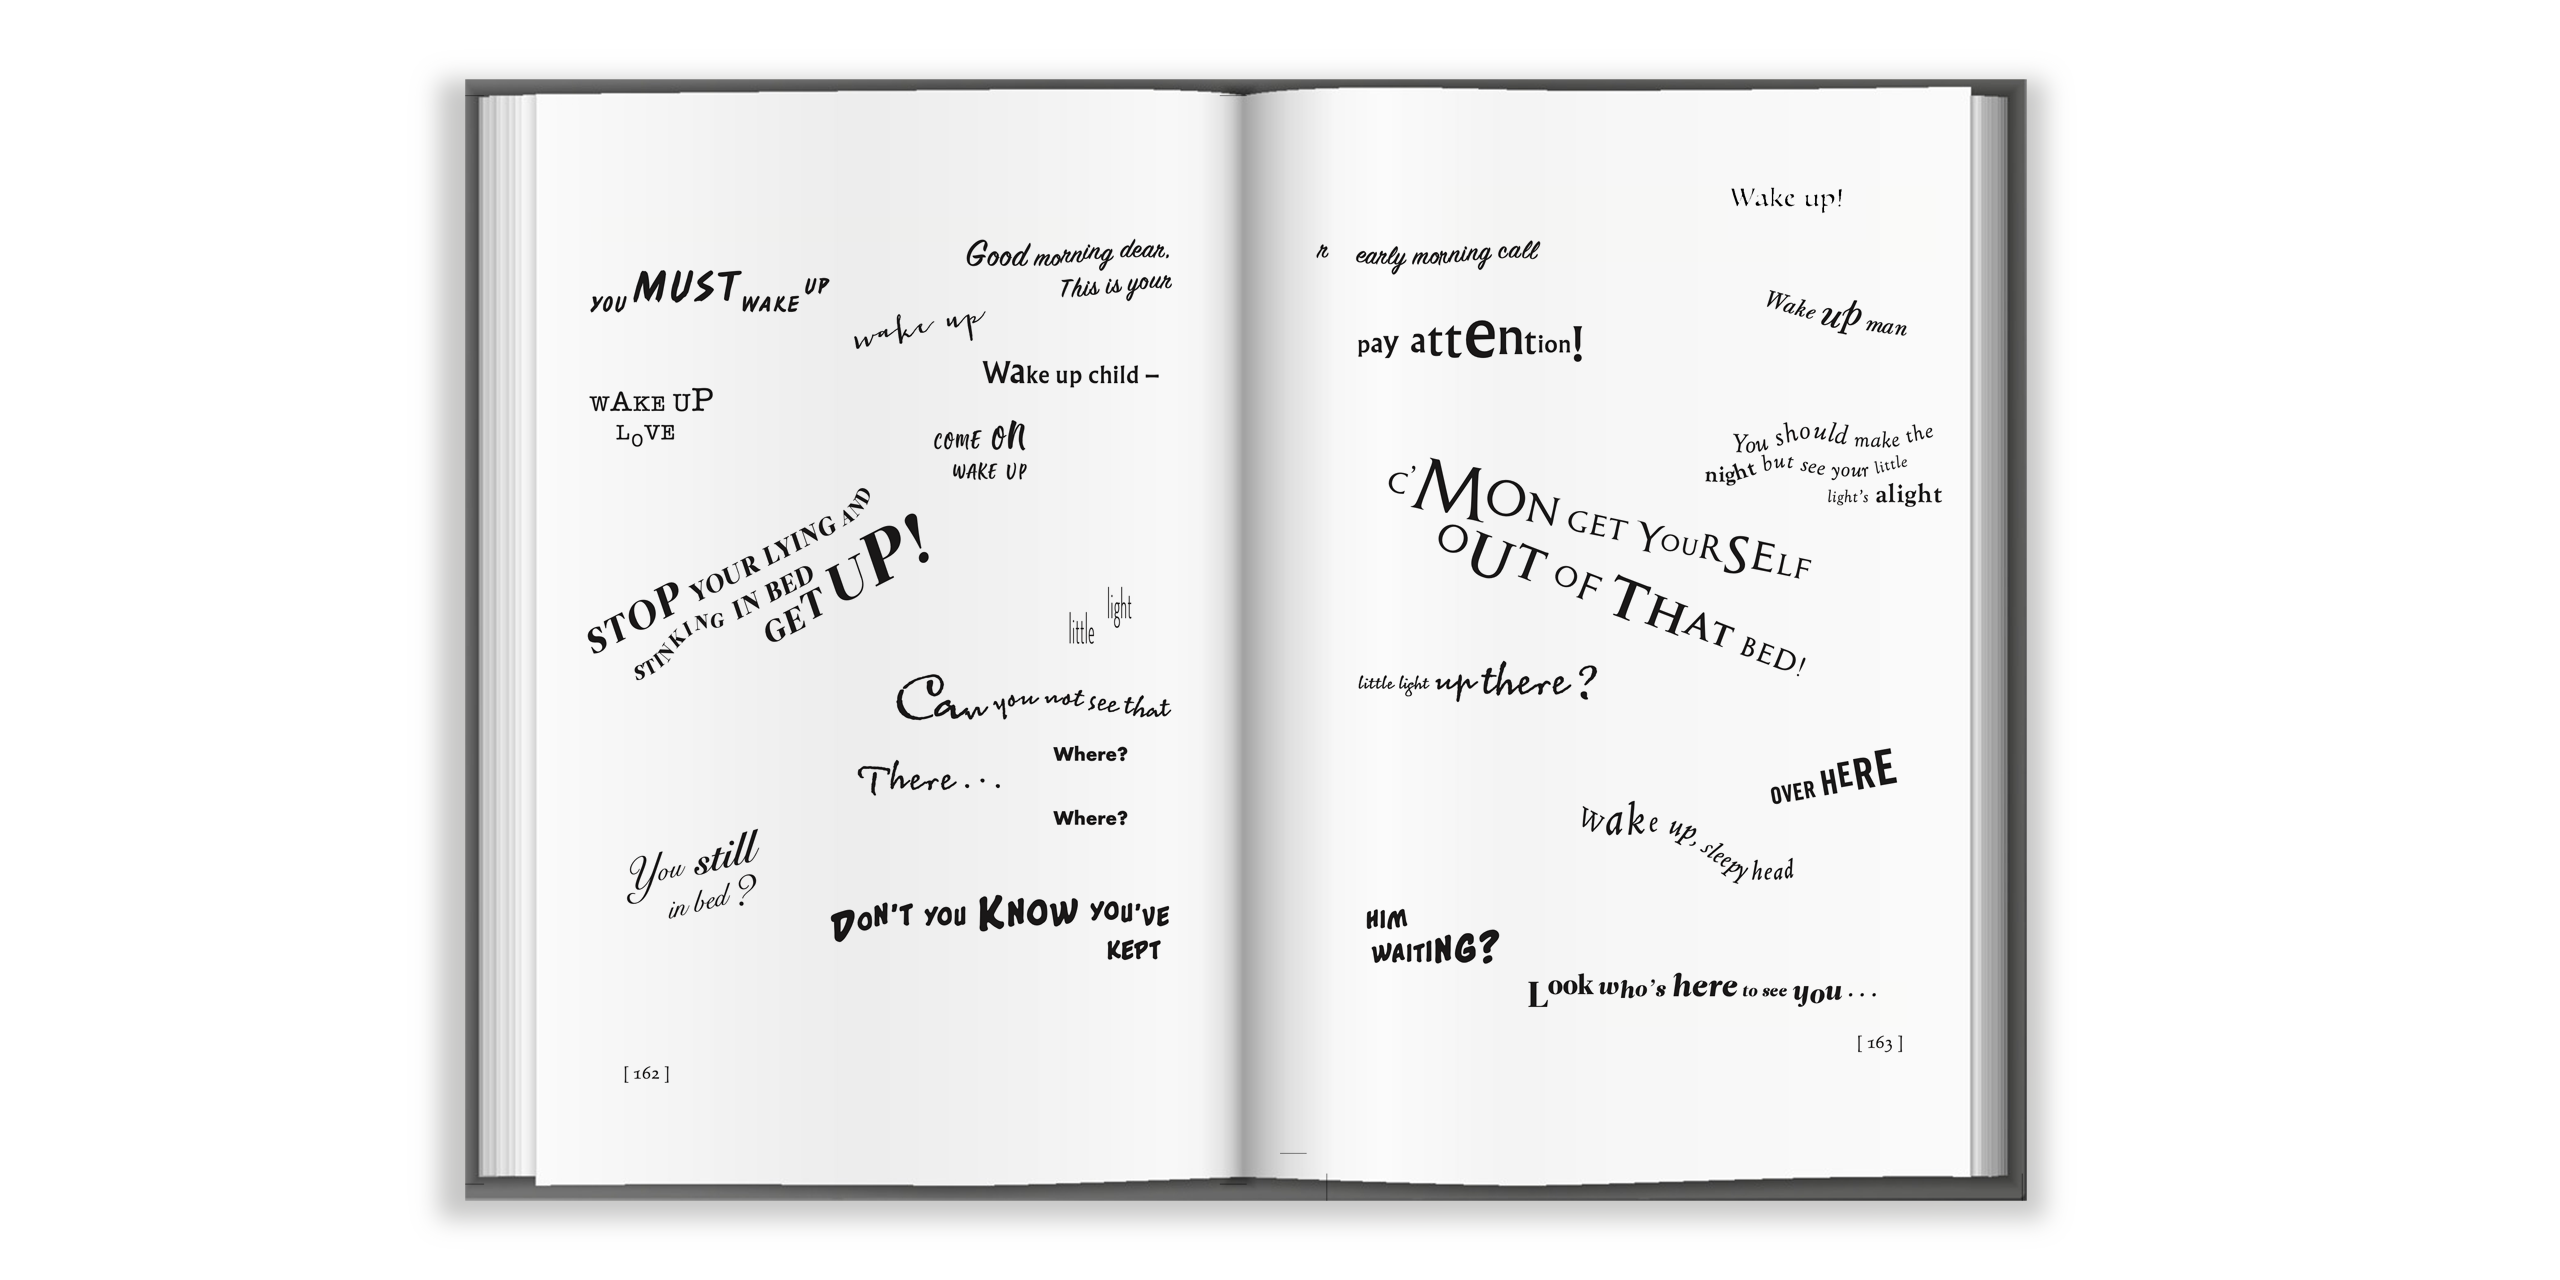 Good morning dear.
This is your
YOU MUST WAKE UP
wake up
Wake up child –
WAKE UP
LOVE
COME ON
WAKE UP
STOP YOUR LYING AND
STINKING IN BED
GET UP!
little light
Can you not see that
Where?
There . . .
Where?
You still
in bed?
DON'T YOU KNOW YOU'VE
KEPT
[ 162 ]
Wake up!
r early morning call
Wake up man
pay attention!
You should make the
night but see your little
light's alight
C'MON GET YOURSELF
OUT OF THAT BED!
little light up there?
OVER HERE
Wake up, sleepy head
HIM
WAITING?
Look who's here to see you . . .
[ 163 ]